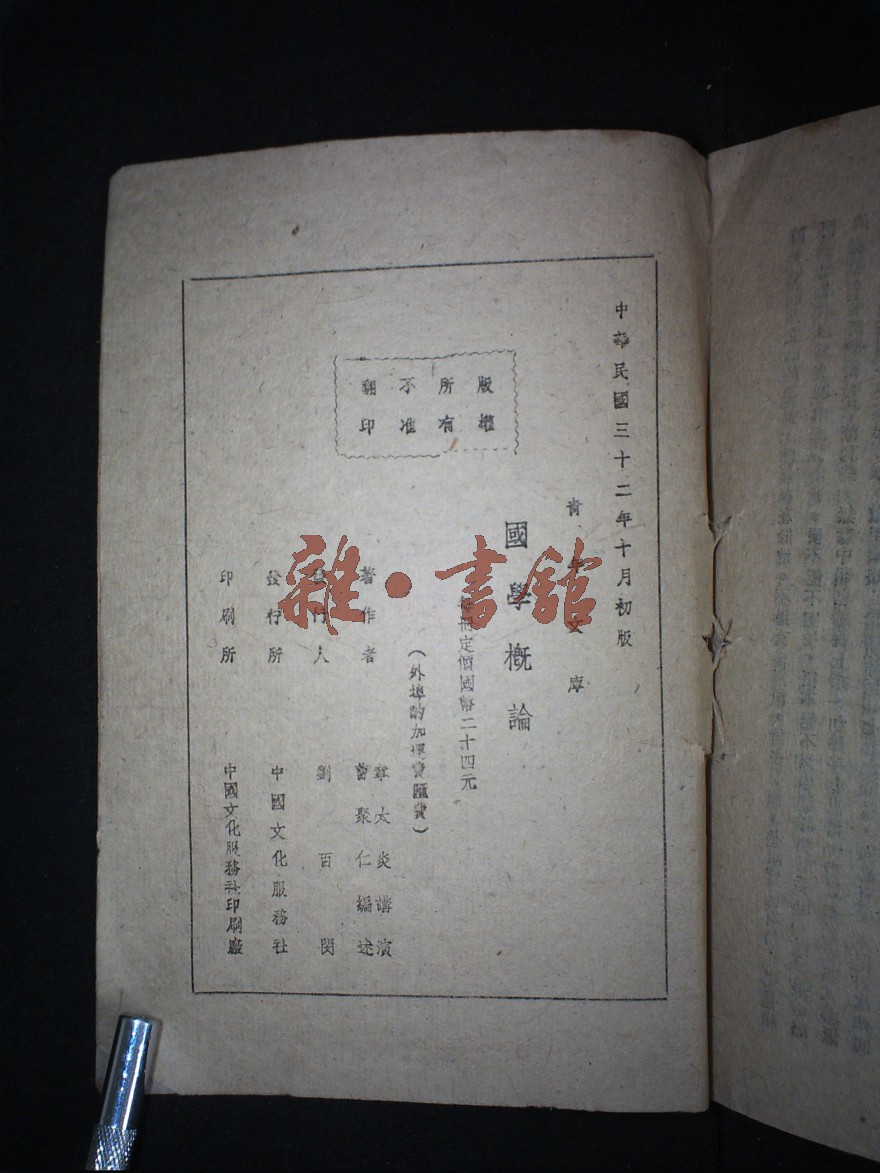 中華民國三十二年十月初版
青年文庫
國學概論
每冊定價國幣二十四元
(外埠酌加運費匯費)
版權
所有
不准
翻印
著作者
章太炎講演
曹聚仁編述
發行人
劉百閔
發行所
中國文化服務社
印刷所
中國文化服務社印刷廠
雜·書舘